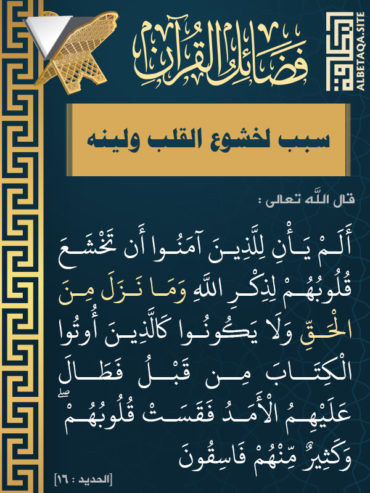 فضائل القرآن
البطاقة
ALBETAQA.SITE
سبب لخشوع القلب ولينه
قال الله تعالى :
أَلَمْ يَأْنِ لِلَّذِينَ آمَنُوا أَن تَخْشَعَ
قُلُوبُهُمْ لِذِكْرِ اللَّهِ وَمَا نَزَلَ مِنَ
الْحَقِّ وَلَا يَكُونُوا كَالَّذِينَ أُوتُوا
الْكِتَابَ مِن قَبْلُ فَطَالَ
عَلَيْهِمُ الْأَمَدُ فَقَسَتْ قُلُوبُهُمْ ۖ
وَكَثِيرٌ مِّنْهُمْ فَاسِقُونَ
[الحديد : ١٦]